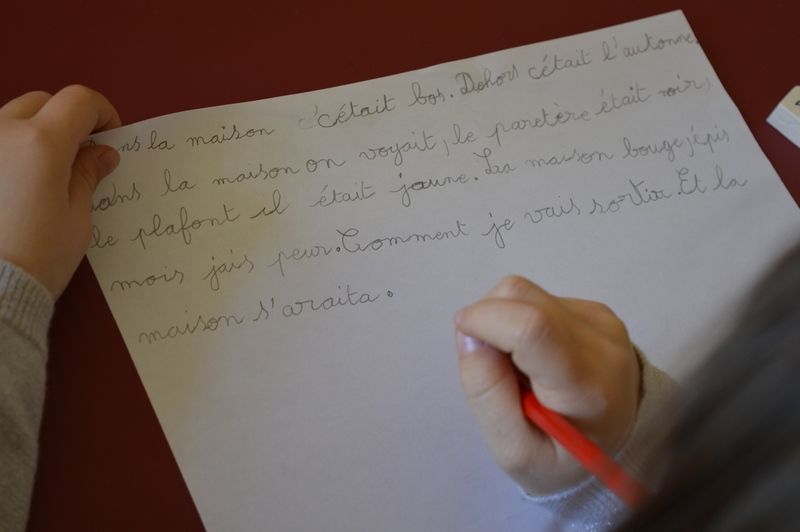 ns la maison c'était bos. Dehors c'était l'automne,
dans la maison on voyait, le paretère était noir,
le plafont il était jaune. La maison bouge, épis
mois jais peur. Comment je vais sortir. Et la
maison s'araita.